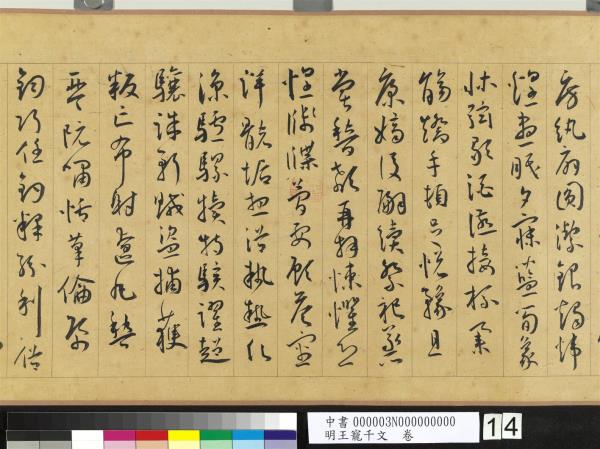 房紈扇圓潔銀燭煒
煌晝眠夕寐藍筍象
牀弦歌酒讌接杯舉
觴矯手頓足悅豫且
康嫡後嗣續祭祀蒸
嘗稽顙再拜悚懼恐
惶牋牒簡要顧答審
詳骸垢想浴執熱願
涼驢騾犢特駭躍超
驤誅斬賊盜捕獲
叛亡布射遼丸嵇
琴阮嘯恬筆倫紙
鈞巧任釣釋紛利俗
中書 000003N000000000
明王寵千文 卷
14